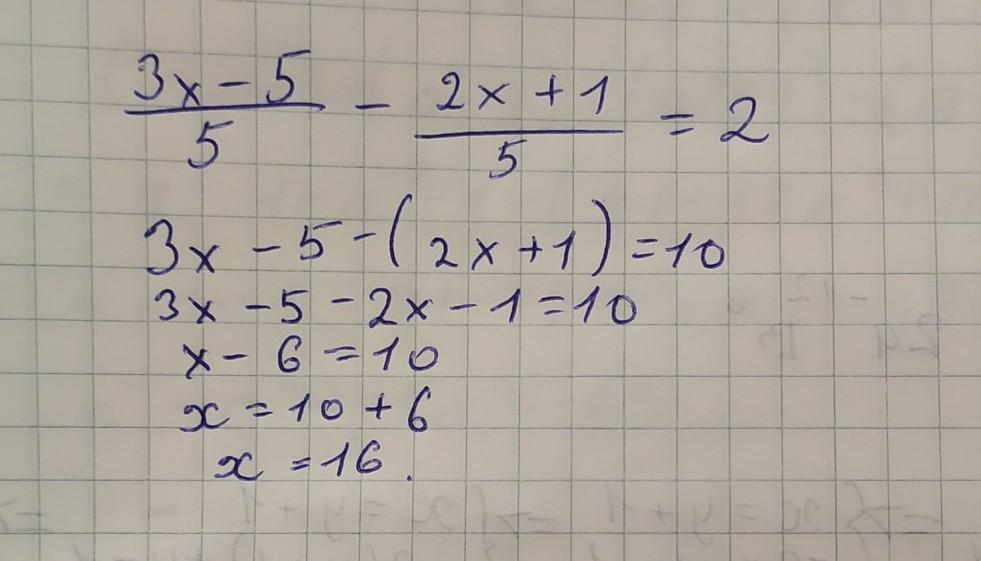 (3x - 5)/5 - (2x + 1)/5 = 2
3x - 5 - (2x + 1) = 10
3x - 5 - 2x - 1 = 10
x - 6 = 10
x = 10 + 6
x = 16.